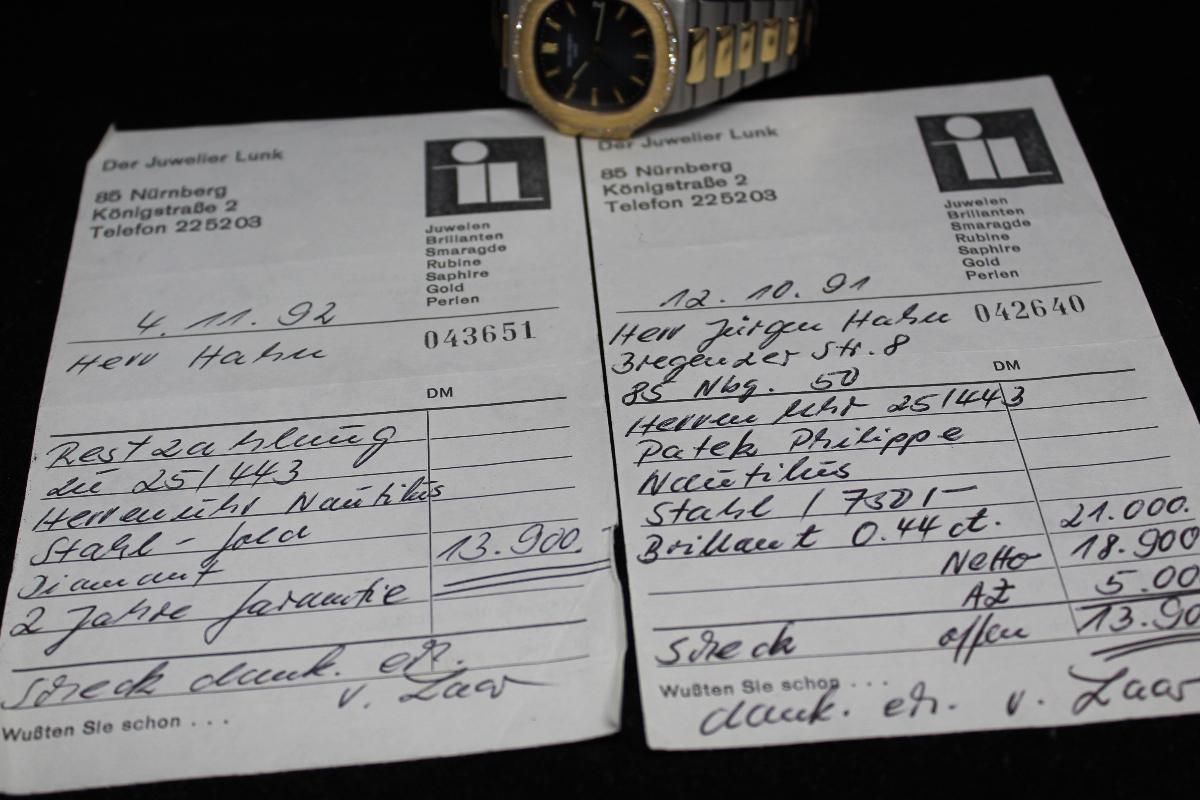 Der Juwelier Lunk
85 Nürnberg
Königstraße 2
Telefon 225203
Juwelen
Brillanten
Smaragde
Rubine
Saphire
Gold
Perlen
4. 11. 92
043651
Herr Hahn
DM
Restzahlung
zu 251443
Herrenuhr Nautilus
Stahl - Gold
13.900.
Diamant
2 Jahre Garantie
Scheck dank. erh.
v. Laar
Wußten Sie schon . . .
Der Juwelier Lunk
85 Nürnberg
Königstraße 2
Telefon 225203
Juwelen
Brillanten
Smaragde
Rubine
Saphire
Gold
Perlen
12. 10. 91
042640
Herr Jürgen Hahn
Bregenzer Str. 8
85 Nbg. 50
DM
Herren Uhr 251443
Patek Philippe
Nautilus
Stahl / 750/-
Brillant 0.44 ct. 21.000.
Netto 18.900
AZ 5.00
Scheck offen 13.90
Wußten Sie schon . . .
dank. erh. v. Laar